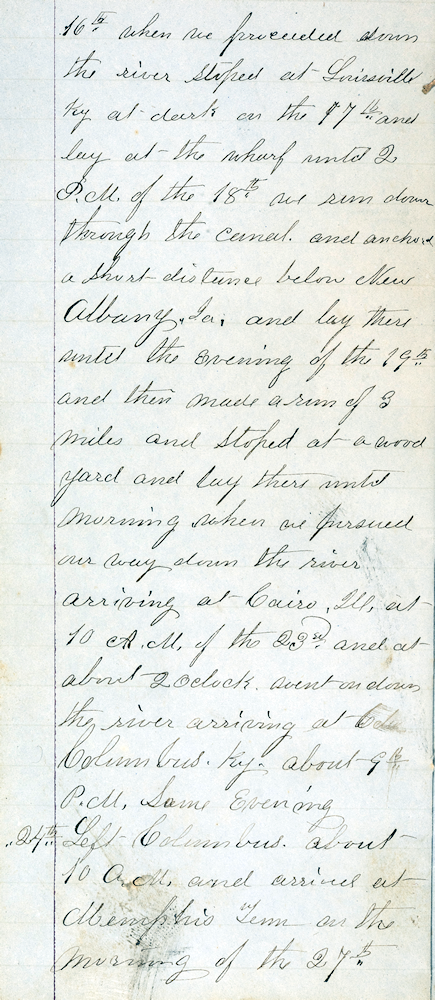 16th when we proceeded down
the river stoped at Louisville
Ky at dark on the 17th and
lay at the wharf until 2
P.M. of the 18th we run down
through the canal. and anchord
a short distance below New
Albany, Ia, and lay there
until the Evening of the 19th
and then made a run of 3
miles and stoped at a wood
yard and lay there until
morning when we pursued
our way down the river
arriving at Cairo, Ill, at
10 A.M. of the 23rd. and at
about 2 Oclock. went on down
the river arriving at
Columbus. Ky. about 9th
P.M. Same Evening
24th Left Columbus. about
10 A.M. and arrived at
Memphis Tenn on the
morning of the 27th